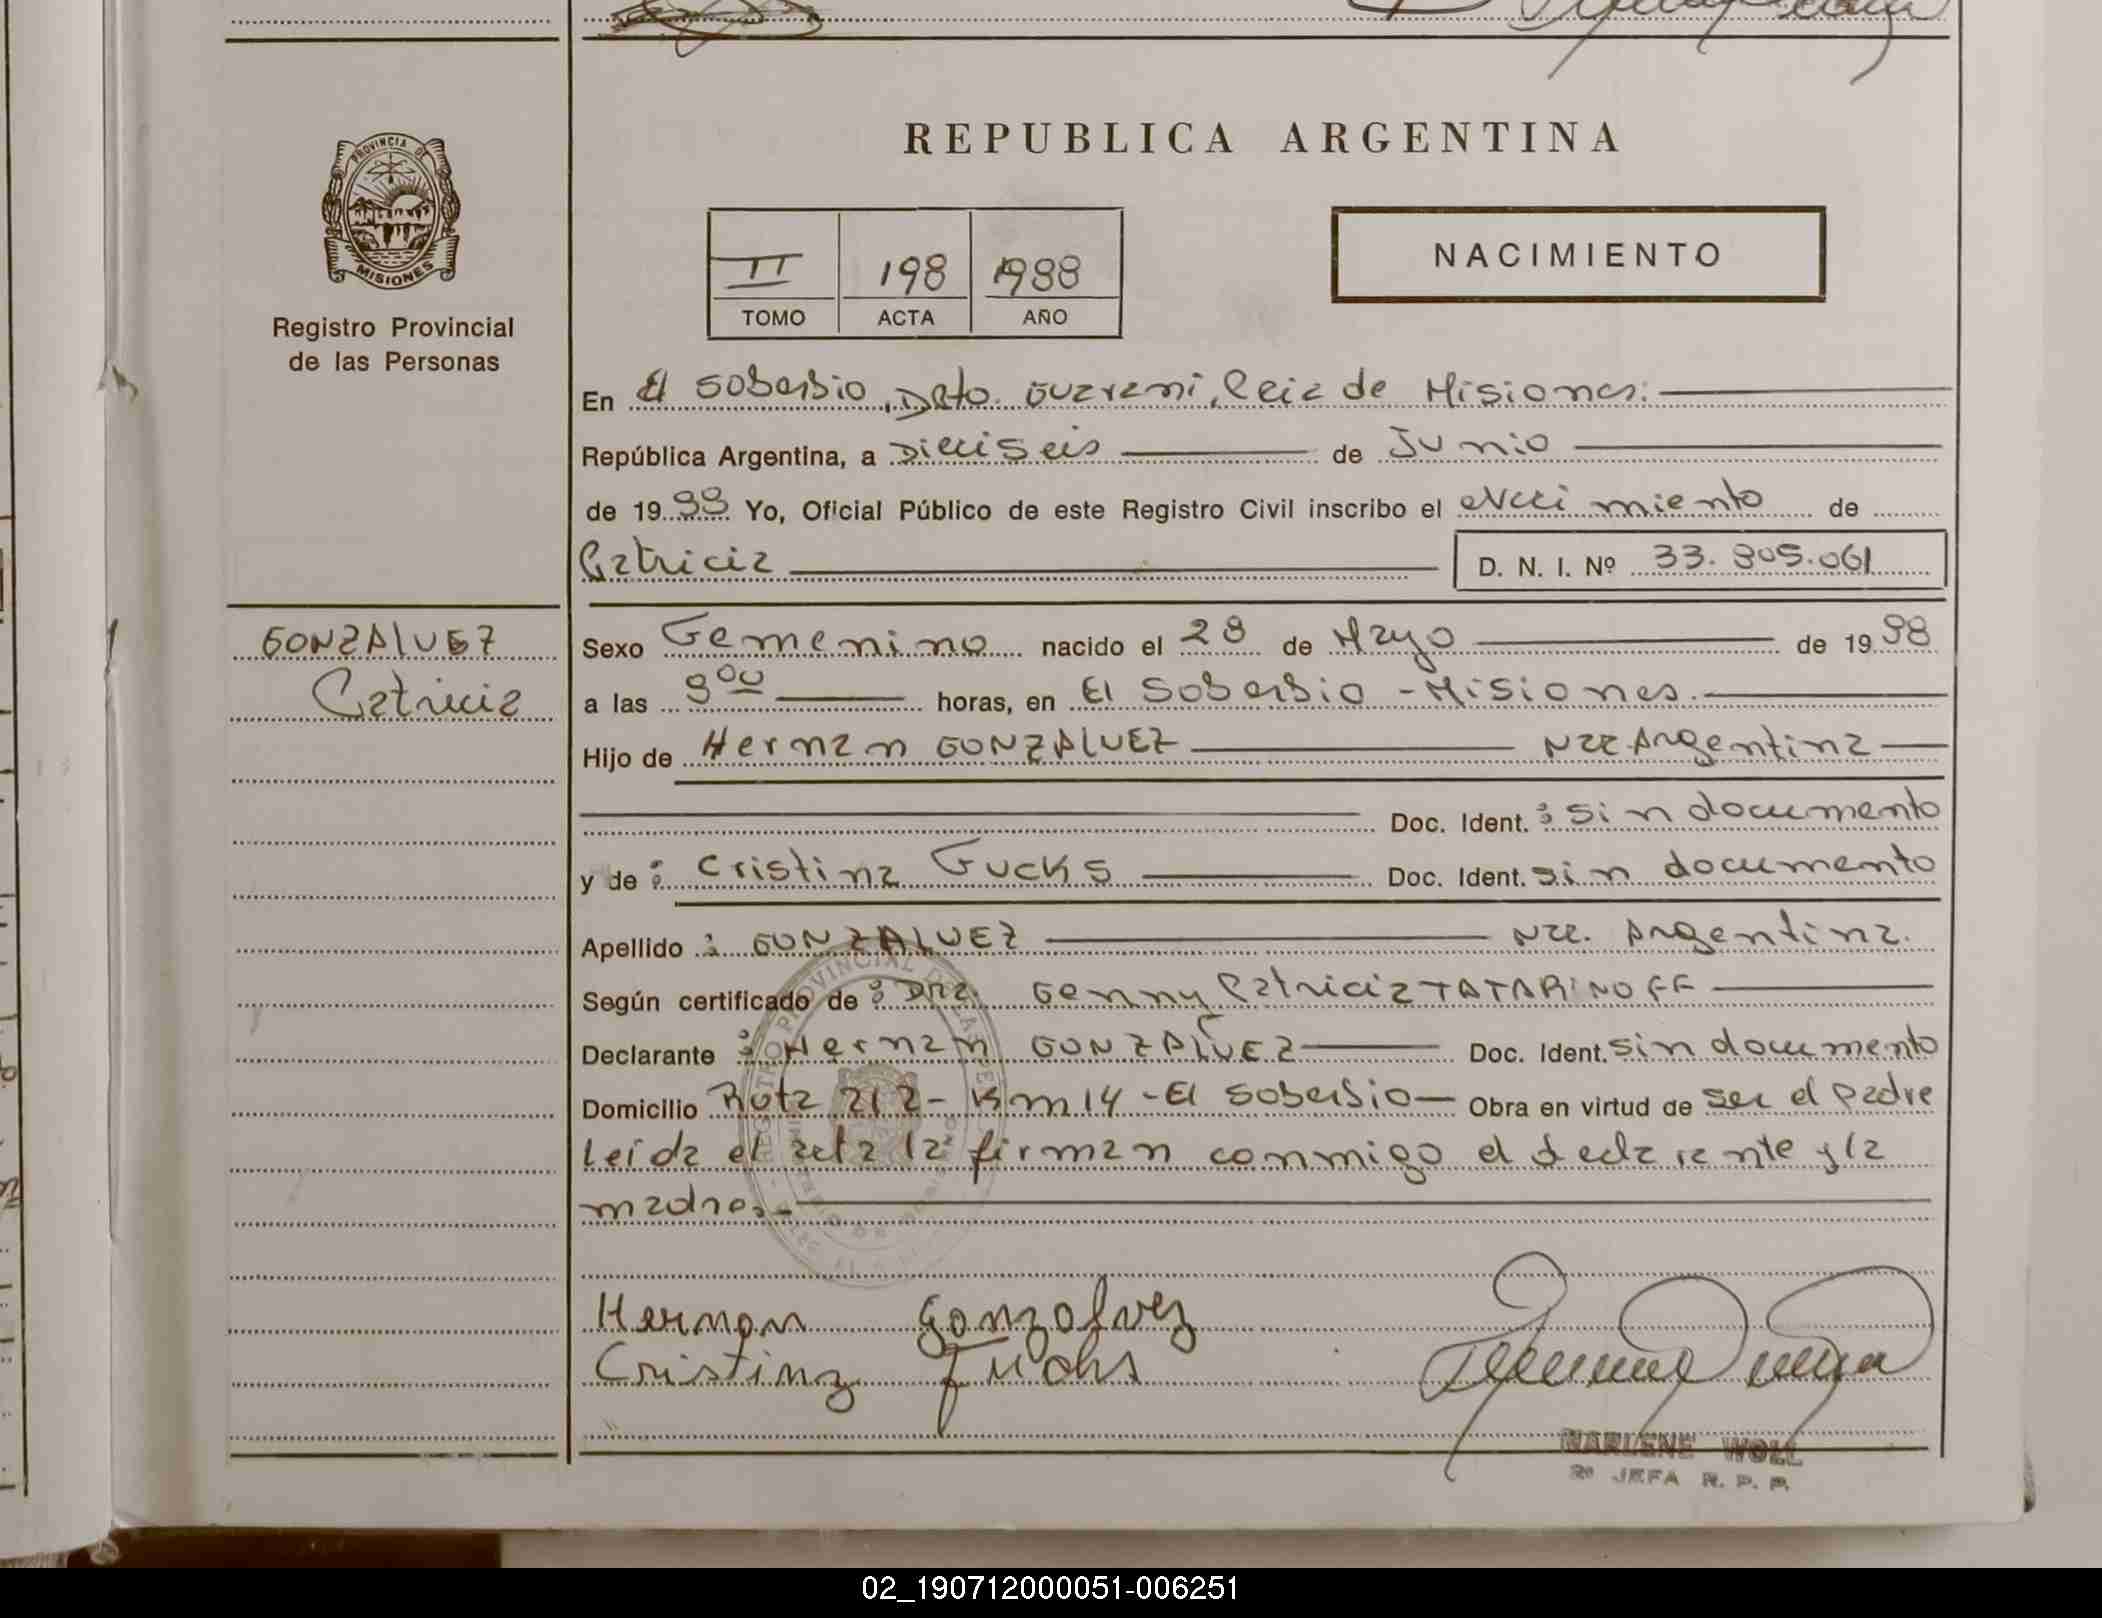 REPUBLICA ARGENTINA
PROVINCIA DE
MISIONES
Registro Provincial
de las Personas
II 198 1988
TOMO ACTA AÑO
NACIMIENTO
En El Soberbio, Dpto. Guarani, Pcia de Misiones.
República Argentina, a Dieciseis de Junio
de 1988 Yo, Oficial Público de este Registro Civil inscribo el Nacimiento de
Patricia D. N. I. Nº 33.805.061
GONZALVEZ
Patricia
Sexo Femenino nacido el 28 de Mayo de 1988
a las 9 00 horas, en El Soberbio - Misiones.
Hijo de Hernan GONZALVEZ Nac Argentina
Doc. Ident. : sin documento
y de : Cristina Fucks Doc. Ident. sin documento
Apellido : GONZALVEZ Nac. Argentina.
Según certificado de : Dra. Genny Patricia TATARINOFF
Declarante : Hernan GONZALVEZ Doc. Ident. sin documento
Domicilio Ruta 212 - Km 14 - El Soberbio Obra en virtud de ser el padre
Leída el acta la firman conmigo el declarante y la
madre.-
Hernan Gonzalvez
Cristina Fuchs
MARLENE WOLL
JEFA R. P. P.
02_190712000051-006251